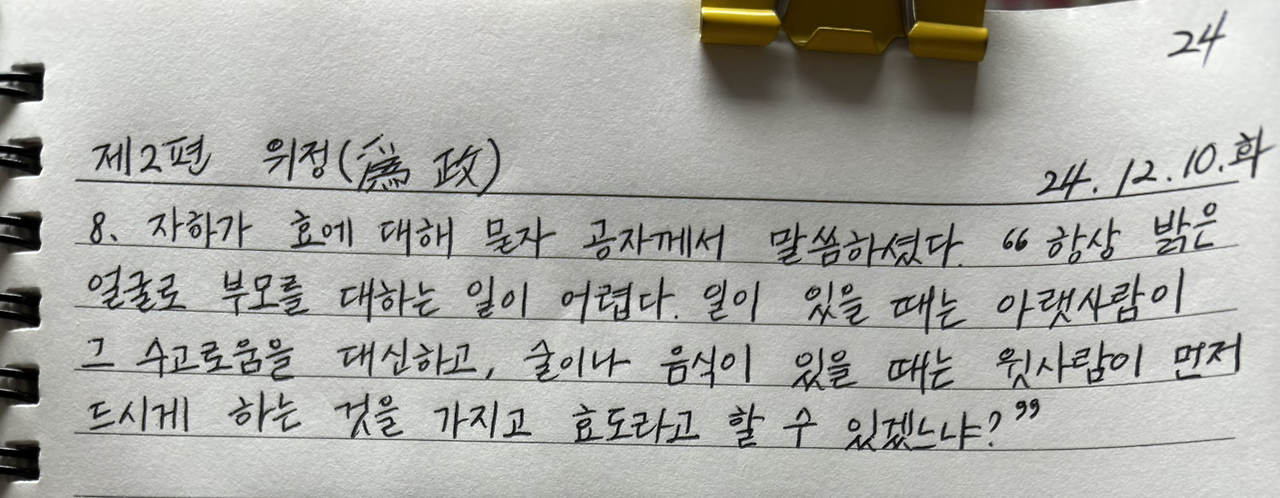 24
제2편 위정(爲政)
24.12.10.화
8. 자하가 효에 대해 묻자 공자께서 말씀하셨다. “항상 밝은
얼굴로 부모를 대하는 일이 어렵다. 일이 있을 때는 아랫사람이
그 수고로움을 대신하고, 술이나 음식이 있을 때는 윗사람이 먼저
드시게 하는 것을 가지고 효도라고 할 수 있겠느냐?”